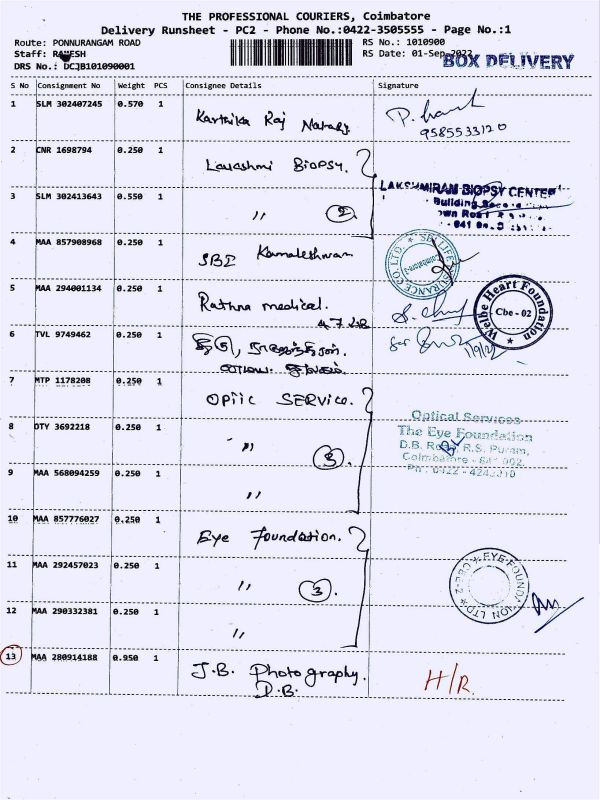 THE PROFESSIONAL COURIERS, Coimbatore
Delivery Runsheet - PC2 - Phone No.:0422-3505555 - Page No.:1
Route: PONNURANGAM ROAD RS No.: 1010900
Staff: RAMESH RS Date: 01-Sep-2022
DRS No.: DCJB101090001 BOX DELIVERY
S No Consignment No Weight PCS Consignee Details Signature
1 SLM 302407245 0.570 1 Karthika Raj
9585533120
2 CNR 1698794 0.250 1 BIOPSY.
3 SLM 302413643 0.550 1 〃 2
LAKSHMIRAM BIOPSY CENTER
Building
4 MAA 857908968 0.250 1 SBI Kamaleshwan
SBI LIFE INSURANCE CO LTD. Coimbatore-2
5 MAA 294001134 0.250 1 Rathna medical.
Welbe Heart Foundation Cbe - 02
6 TVL 9749462 0.250 1
7 MTP 1178208 0.250 1 OPtic SERVICE.
8 OTY 3692218 0.250 1 〃 3
Optical Services
The Eye Foundation
D.B. Road, R.S. Puram,
Coimbatore - 641 002.
9 MAA 568094259 0.250 1 〃
10 MAA 857776027 0.250 1 Eye Foundation.
11 MAA 292457023 0.250 1 〃 3.
EYE FOUNDATION LTD CBE-2
12 MAA 290332381 0.250 1 〃
13 MAA 280914188 0.950 1 J.B. Photography.
D.B.
H/R.